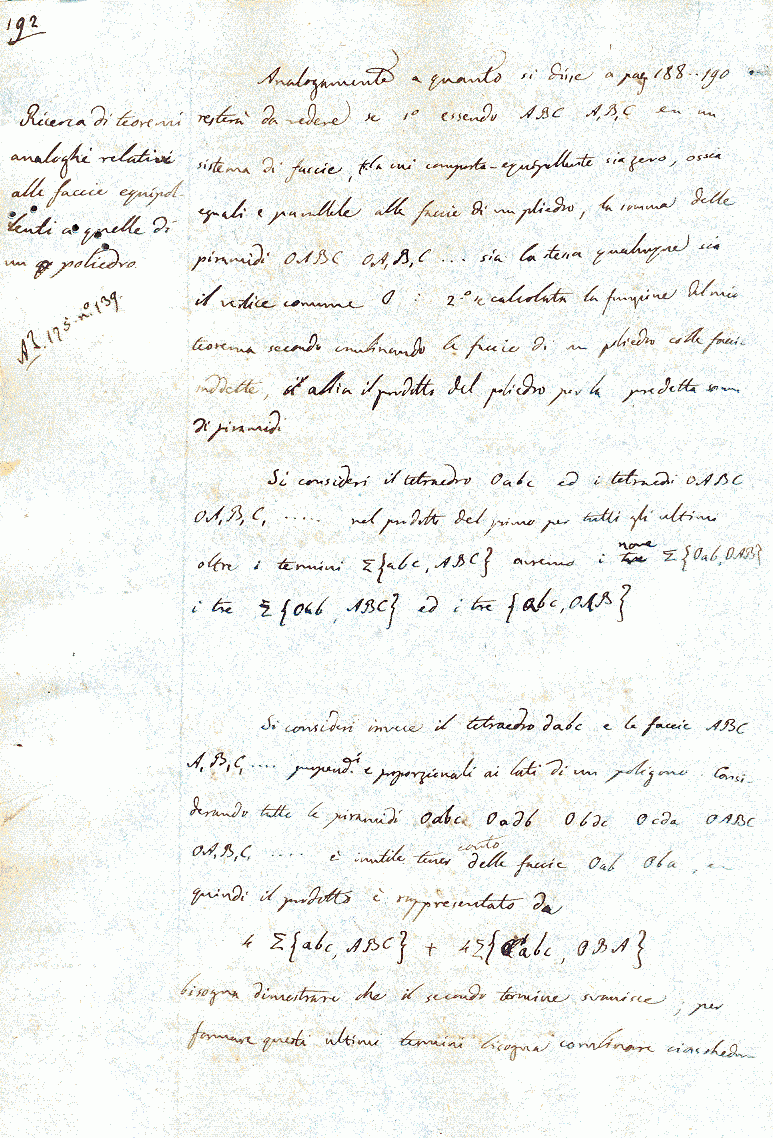 192
Ricerca di teoremi
analoghi relativi
alle faccie equipol-
lenti a quelle di
un poliedro.
175 nº 139.
Analogamente a quanto si disse a pag 188...190
resterà da vedere se 1º essendo ABC A,B,C en un
sistema di faccie, la cui composta-equipollente sia zero, ossia
eguali e parallele alle faccie di un poliedro, la somma delle
piramidi OABC OA,B,C ... sia la stessa qualunque sia
il vertice comune O : 2º se calcolata la funzione del mio
teorema secondo combinando le faccie di un poliedro colle faccie
suddette, si abbia il prodotto del poliedro per la predetta somma
di piramidi
Si consideri il tetraedro Oabc ed i tetraedri OABC
OA,B,C, ..... nel prodotto del primo per tutti gli ultimi
oltre i termini Σ{abc, ABC} avremo i nove Σ{Oab, OAB}
i tre Σ{Oab, ABC} ed i tre {abc, OAB}
Si consideri invece il tetraedro dabc e le faccie ABC
A,B,C, .... perpendi e proporzionali ai lati di un poligono. Consi-
derando tutte le piramidi Oabc Oadb Obdc Ocda OABC
OA,B,C, ..... è inutile tener conto delle faccie Oab Oba,
quindi il prodotto è rappresentato da
4 Σ{abc, ABC} + 4Σ{abc, OBA}
bisogna dimostrare che il secondo termine svanisce; per
formare questi ultimi termini bisogna combinare ciaschedun